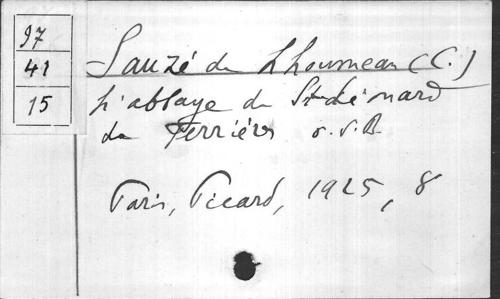 97
41
15
Sauzé de Lhoumeau (C.)
L'abbaye de St Léonard
de Ferrières o.s.B
Paris, Picard, 1925, 8